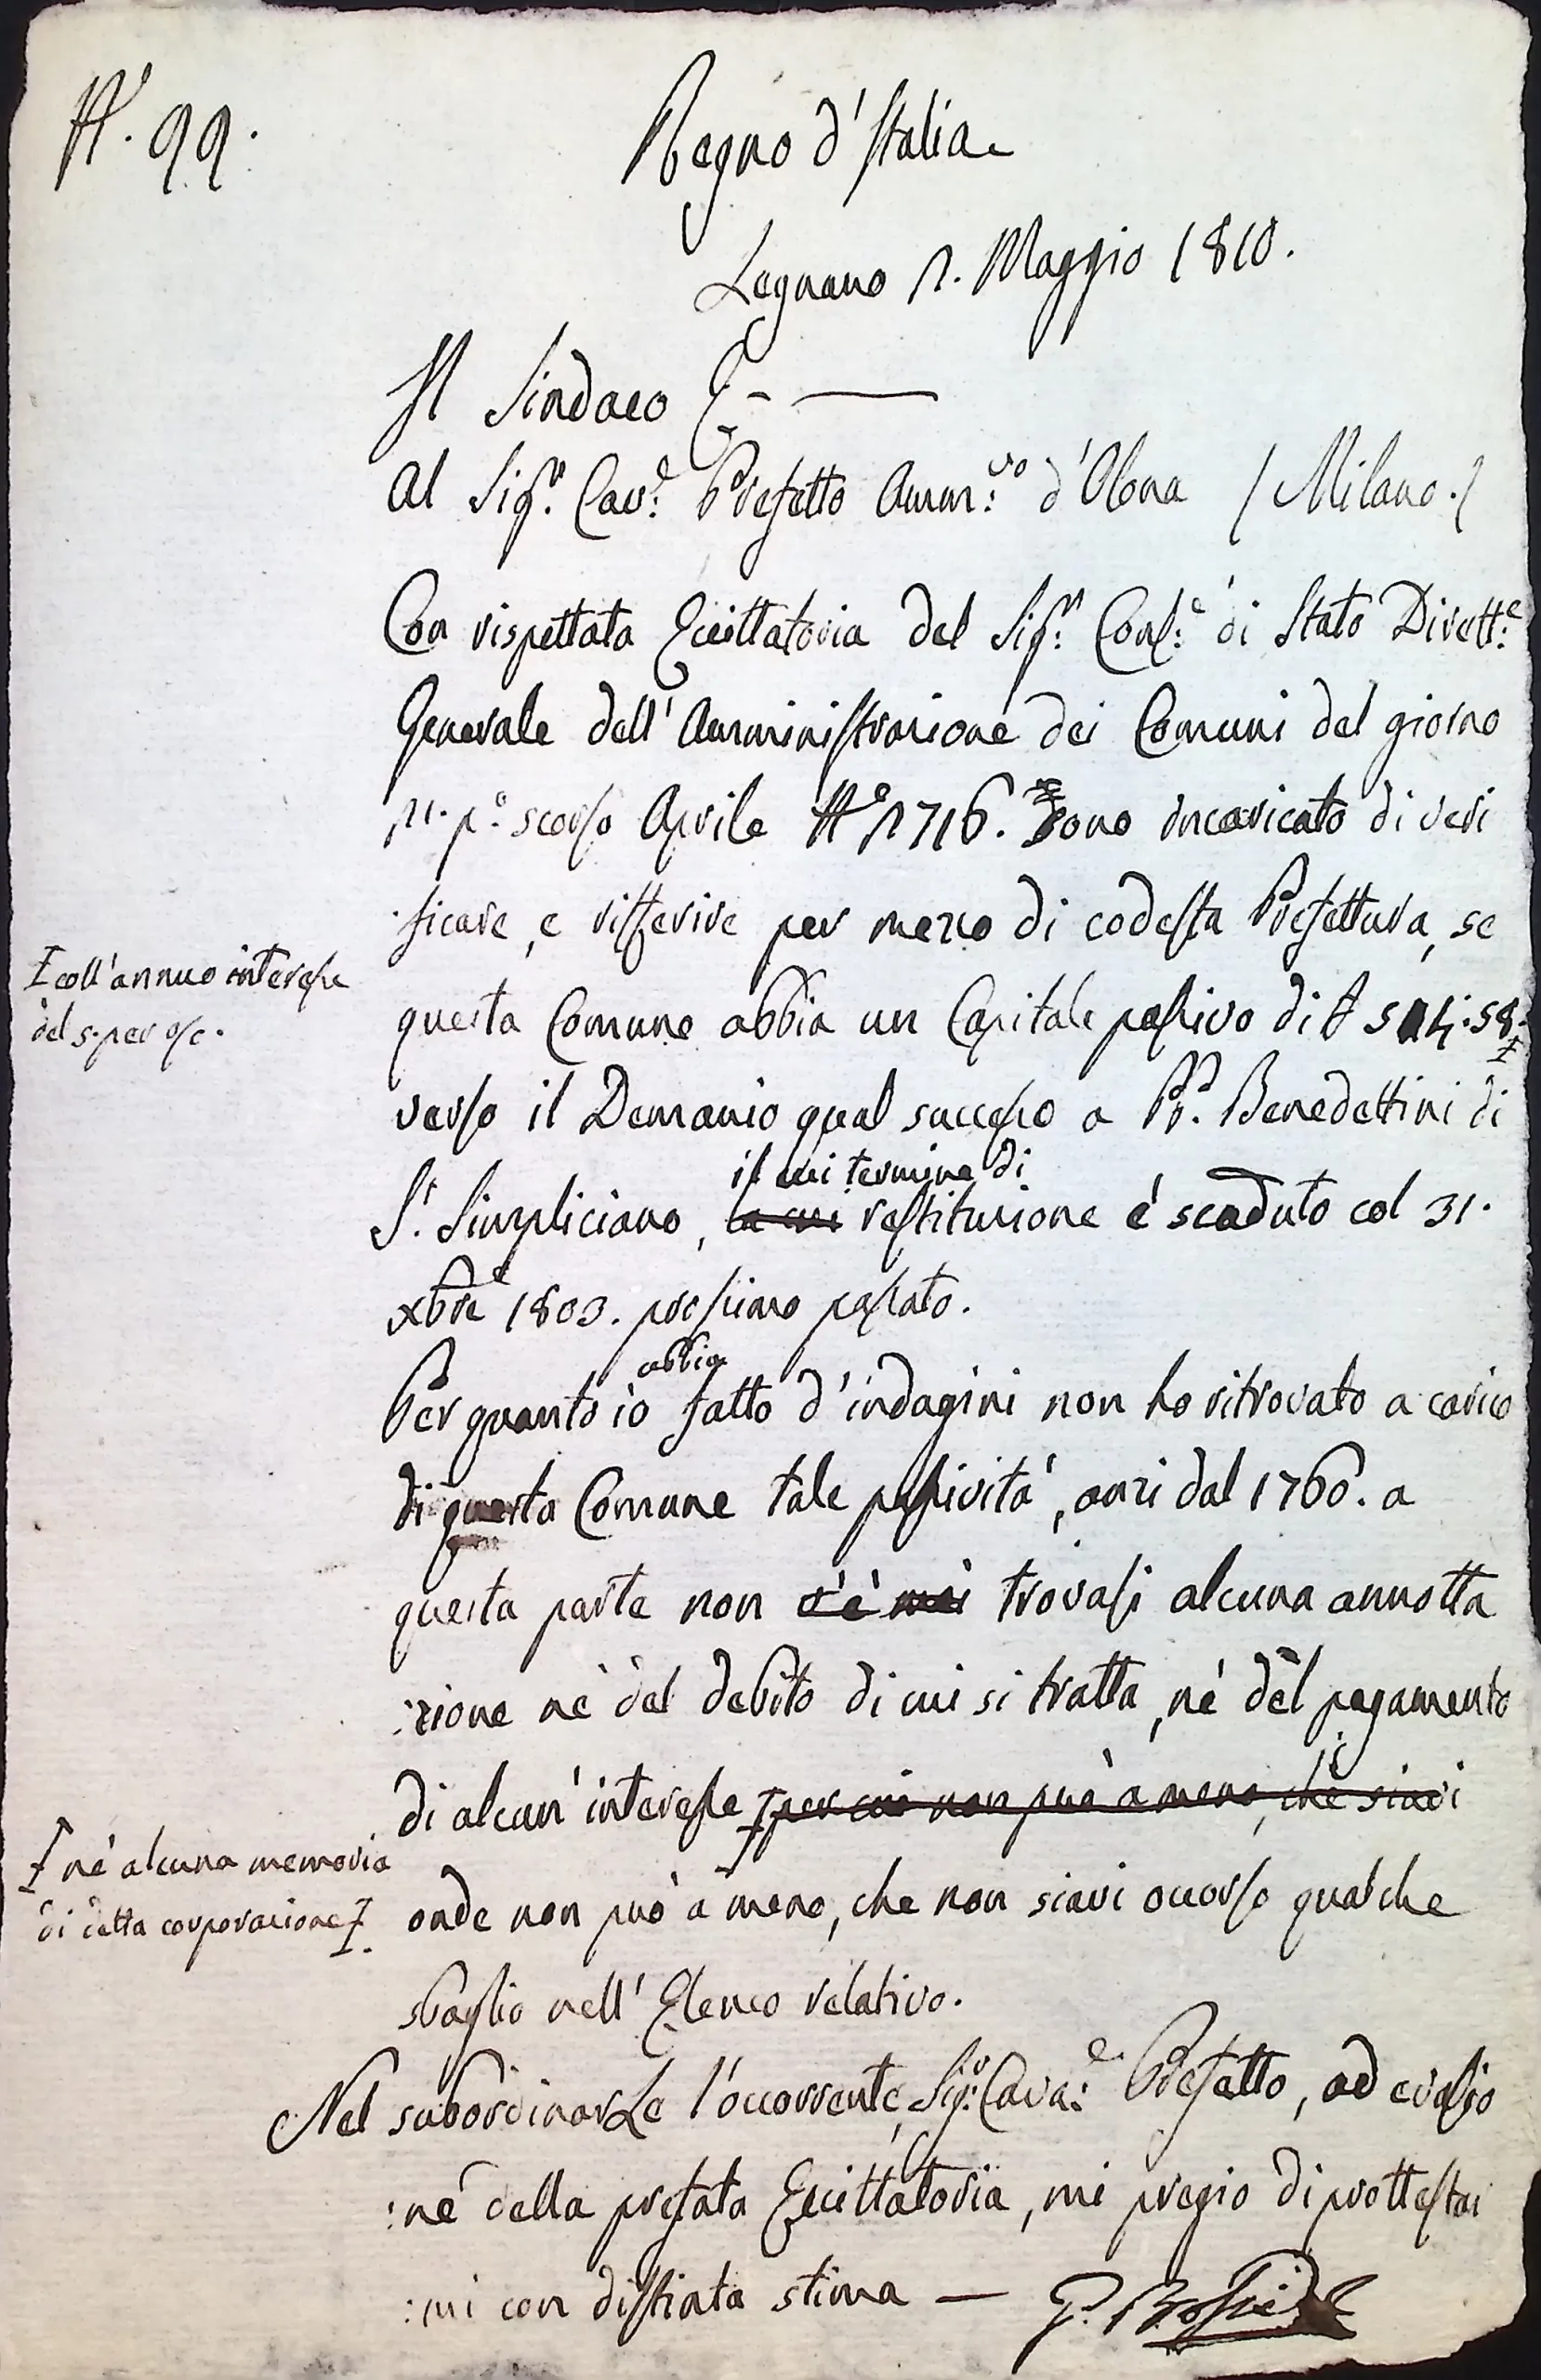 N.° 99.
Regno d'Italia
Legnano 2. Maggio 1810.
Il Sindaco
Al Sig.r Cav.e Prefetto Amm.vo d'Olona (Milano.)
Con rispettata Eccittatoria del Sig.r Conf.e di Stato Dirett.e
Generale dell'Amministrazione dei Comuni del giorno
p.° scorso Aprile N.° 2716. sono incaricato di veri
ficare, e rifferire per mezzo di codesta Prefettura, se
questa Comune abbia un Capitale passivo di
‡ coll'annuo interesse
del 5. per %.
verso il Demanio qual successo a PP. Benedettini di
il cui termine di
S. Simpliciano, la cui restituzione é scaduto col 31.
xbre 1803. prossimo passato.
abbia
Per quanto io fatto d'indagini non ho ritrovato a carico
di questa Comune tale passività, anzi dal 1760. a
questa parte non s'è mai trovasi alcuna annotta
:zione nè del debito di cui si tratta, né del pagamento
di alcun'interesse ‡ per cui non può a meno, che siavi
‡ nè alcuna memoria
di detta corporazione ‡.
onde non può a meno, che non siavi occorso qualche
sbaglio nell'Elenco relativo.
Nel subordinarLe l'occorrente, Sig.r Cava.e Prefetto, ad evasio
:ne della prefata Eccittatoria, mi pregio di prottestar
:mi con distinta stima —